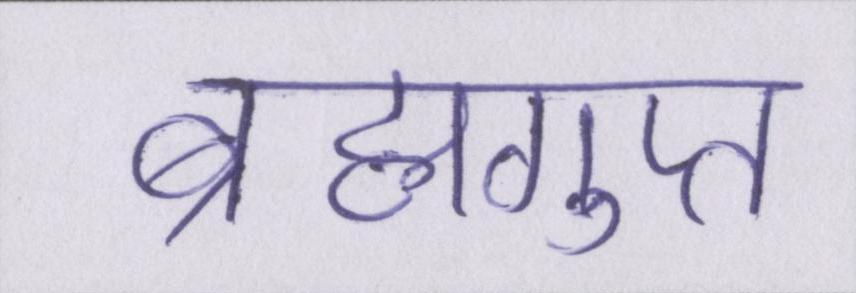 ब्रह्मगुप्त